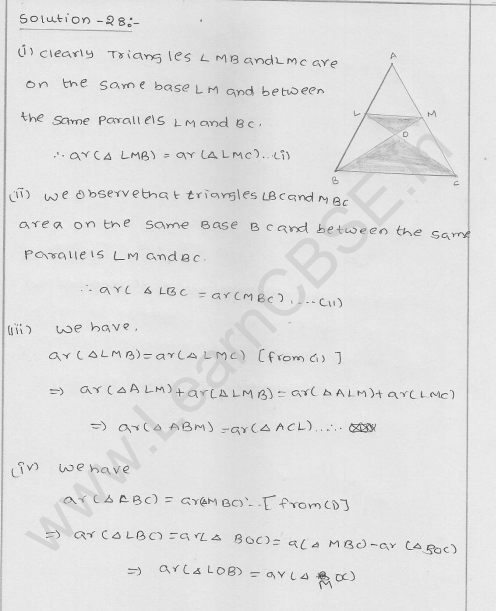 Solution -28:-
(i) clearly Triangles LMB and LMC are
on the same base LM and between
the same parallels LM and BC.
∴ ar(Δ LMB) = ar(Δ LMC)..(i)
A
L
M
O
B
C
(ii) we observe that triangles LBC and MBC
area on the same Base BC and between the same
parallels LM and BC.
∴ ar( Δ LBC = ar(MBC)....(ii)
(iii) we have.
ar(ΔLMB) = ar(Δ LMC) [from (i) ]
⇒ ar(ΔALM)+ar(ΔLMB) = ar(ΔALM)+ar(LMC)
⇒ ar(Δ ABM) = ar(Δ ACL)....
(iv) we have
ar(Δ LBC) = ar(MBC)..[from(i)]
⇒ ar(Δ LBC) = ar(Δ BOC) = a(Δ MBC)-ar (ΔBOC)
⇒ ar(Δ LOB) = ar(Δ MOC)
www.LearnCBSE.in